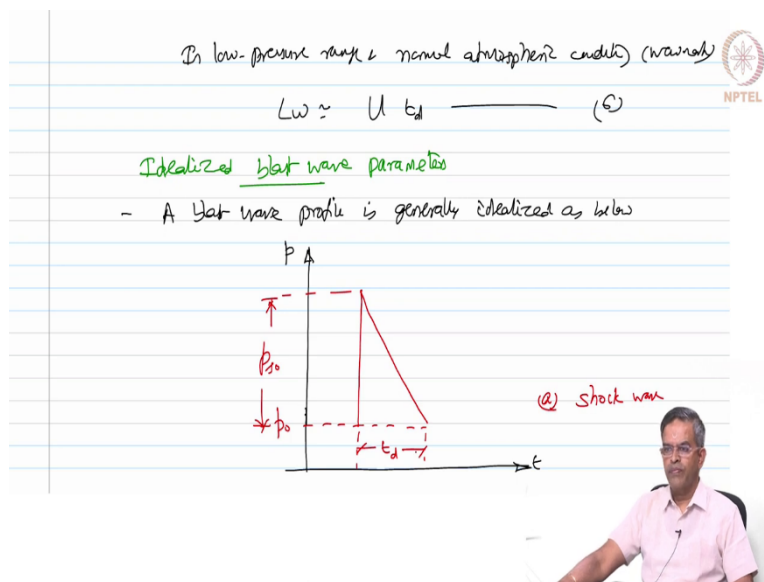 In low-pressure range & normal atmospheric condition) (warrants)
NPTEL
Lw ≃ U td ——— (6)
Idealized blast wave parameters
- A blast wave profile is generally idealized as below
p
pso
(a) shock wave
po
td
t